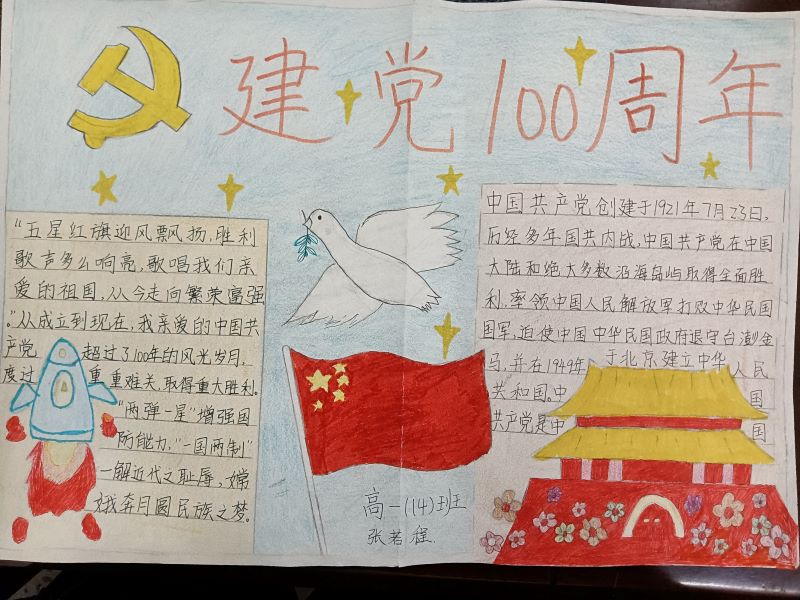 建党100周年
“五星红旗迎风飘扬,胜利
歌声多么响亮,歌唱我们亲
爱的祖国,从今走向繁荣富强
。”从成立到现在,我亲爱的中国共
产党 超过了100年的风光岁月,
度过 重重难关,取得重大胜利。
“两弹一星”增强国
防能力,“一国两制”
一解近代之耻辱,嫦
娥奔月圆民族之梦。
中国共产党创建于1921年7月23日,
历经多年国共内战,中国共产党在中国
大陆和绝大多数沿海岛屿取得全面胜
利,率领中国人民解放军打败中华民国
国军,迫使中国中华民国政府退守台澎金
马,并在1949年 于北京建立中华人民
共和国。中 国
共产党是中 国
高一(14)班
张若程